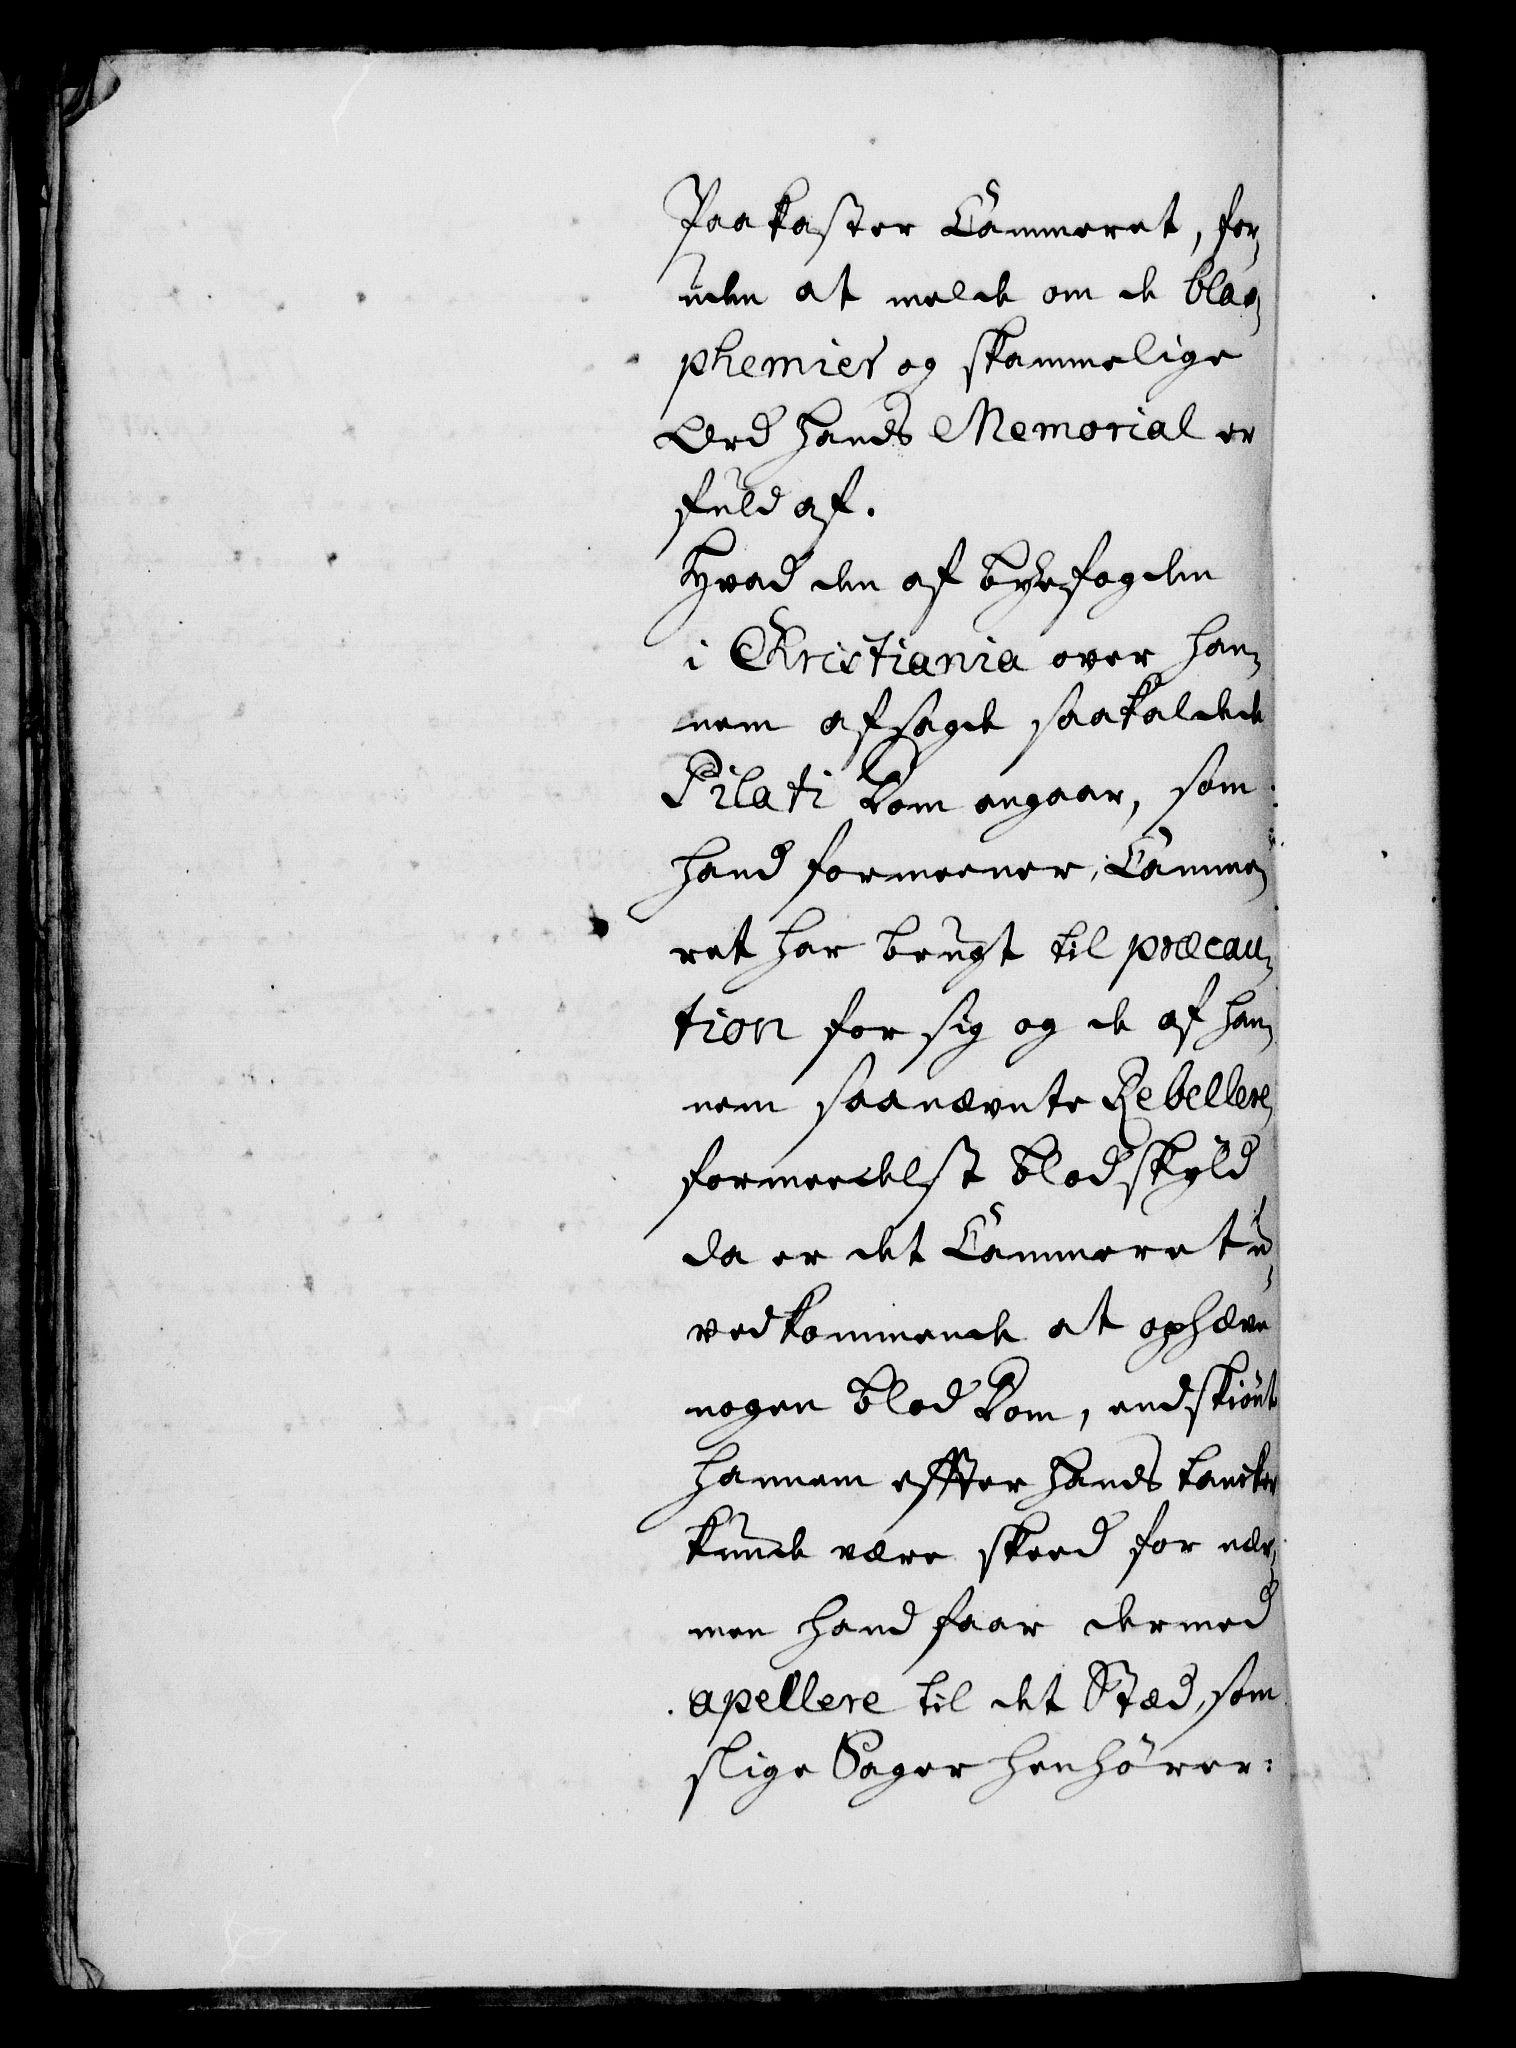 Paakaster Cammeret, for¬
uden at melde om de blas¬
phemier og skammelige
Ord hands Memorial er
fuld af.
Hvad den af byefogden
i Christiania over han¬
nem afsagde saakaldede
Pilati Dom angaar, som
hand formeener, Camme¬
ret har brugt til præcau¬
tion for sig og de af han¬
nem saanævnte Rebellere
formedelst blodskyld
da er det Cammeret u¬
vedkommende at ophæve
nogen blod Dom, endskiønt
hannem effter hands tancker
kunde være skeed for nær,
men hand faar dermed
apellere til det Stæd, som
slige Sager henhörer: